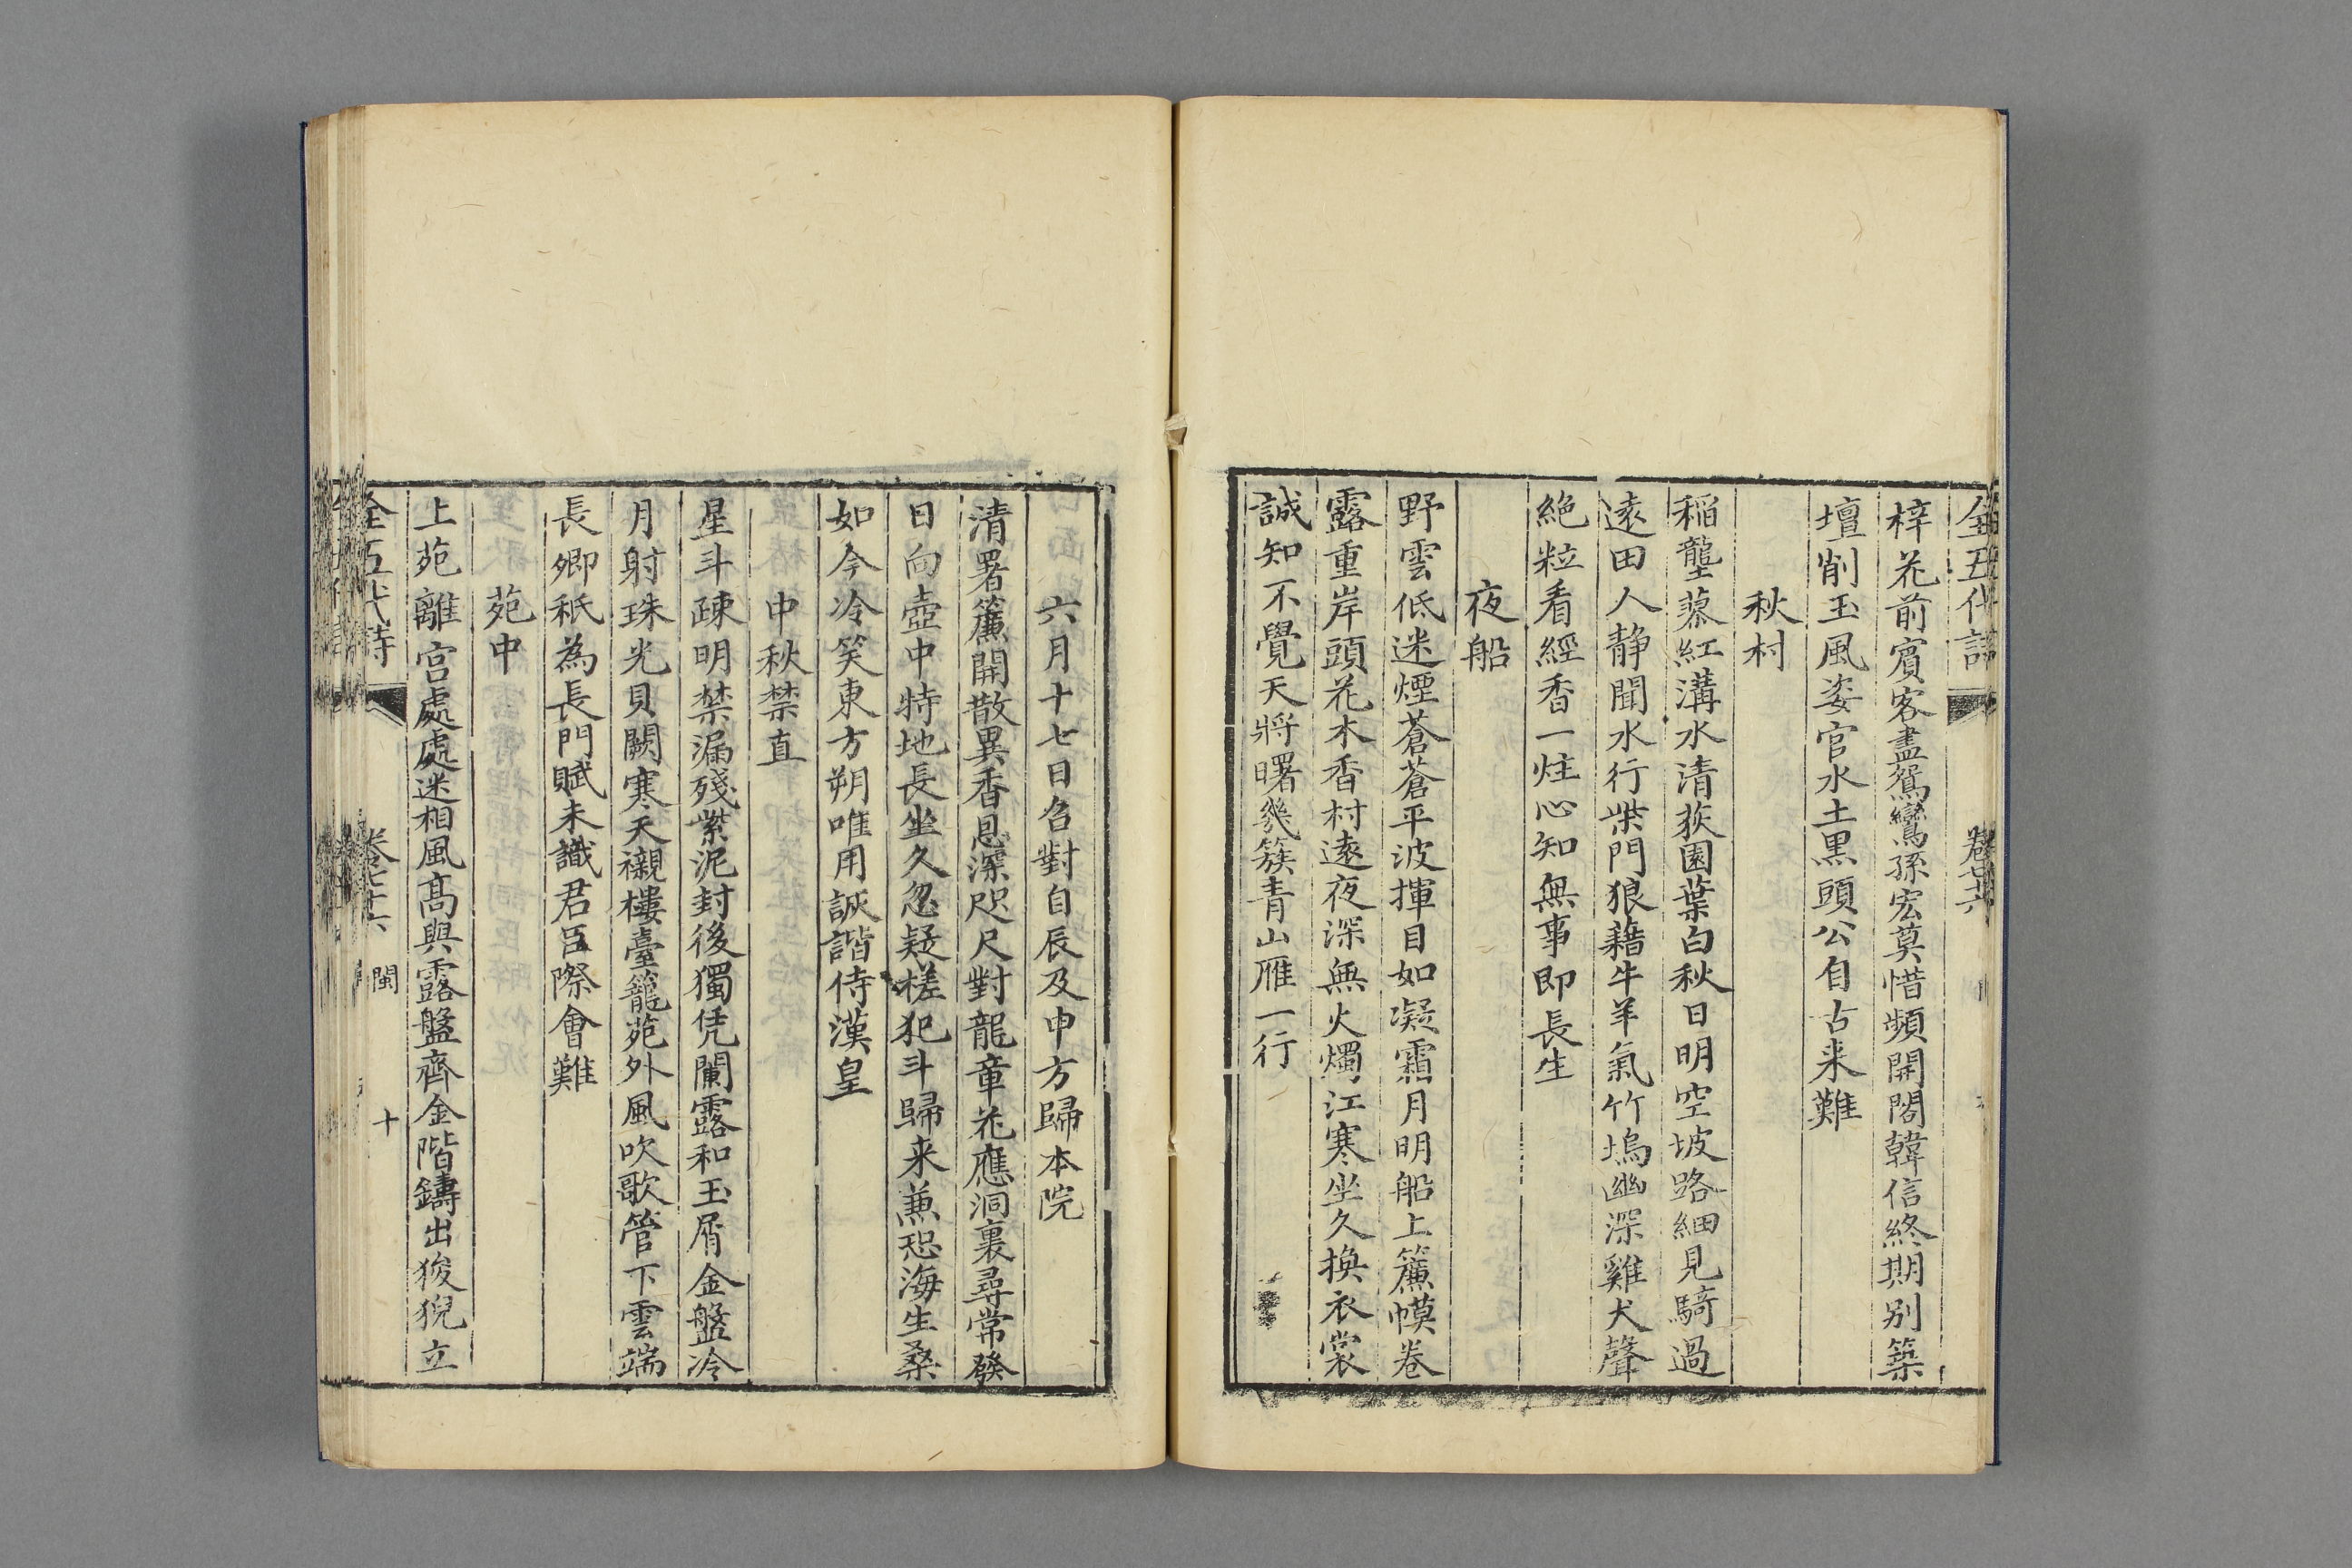 全五代詩 卷七十六
梓花前賓客盡鴛鸞孫宏莫惜頻開閤韓信終期别築
壇削玉風姿官水土黒頭公自古来難
秋村
稲壟蓼紅溝水清荻園葉白秋日明空坡路細見騎過
遠田人静聞水行柴門狼藉牛羊氣竹塢幽深雞犬聲
絶粒看經香一炷心知無事即長生
夜船
野雲低迷煙蒼蒼平波揮目如凝霜月明船上簾幙卷
露重岸頭花木香村遠夜深無火燭江寒坐久換衣裳
誠知不覺天將曙幾簇青山雁一行
六月十七日召對自辰及申方歸本院
清署簾開散異香恩深咫尺對龍章花應洞裏尋常發
日向壺中特地長坐久忽疑槎犯斗歸来兼恐海生桑
如今冷笑東方朔唯用詼諧侍漢皇
中秋禁直
星斗疎明禁漏殘紫泥封後獨凭闌露和玉屑金盤冷
月射珠光貝闕寒天襯樓臺籠苑外風吹歌管下雲端
長卿秖為長門賦未識君臣際會難
苑中
上苑離宫處處迷相風髙與露盤齊金階鑄出狻猊立
全五代詩 卷七十六 閩 十